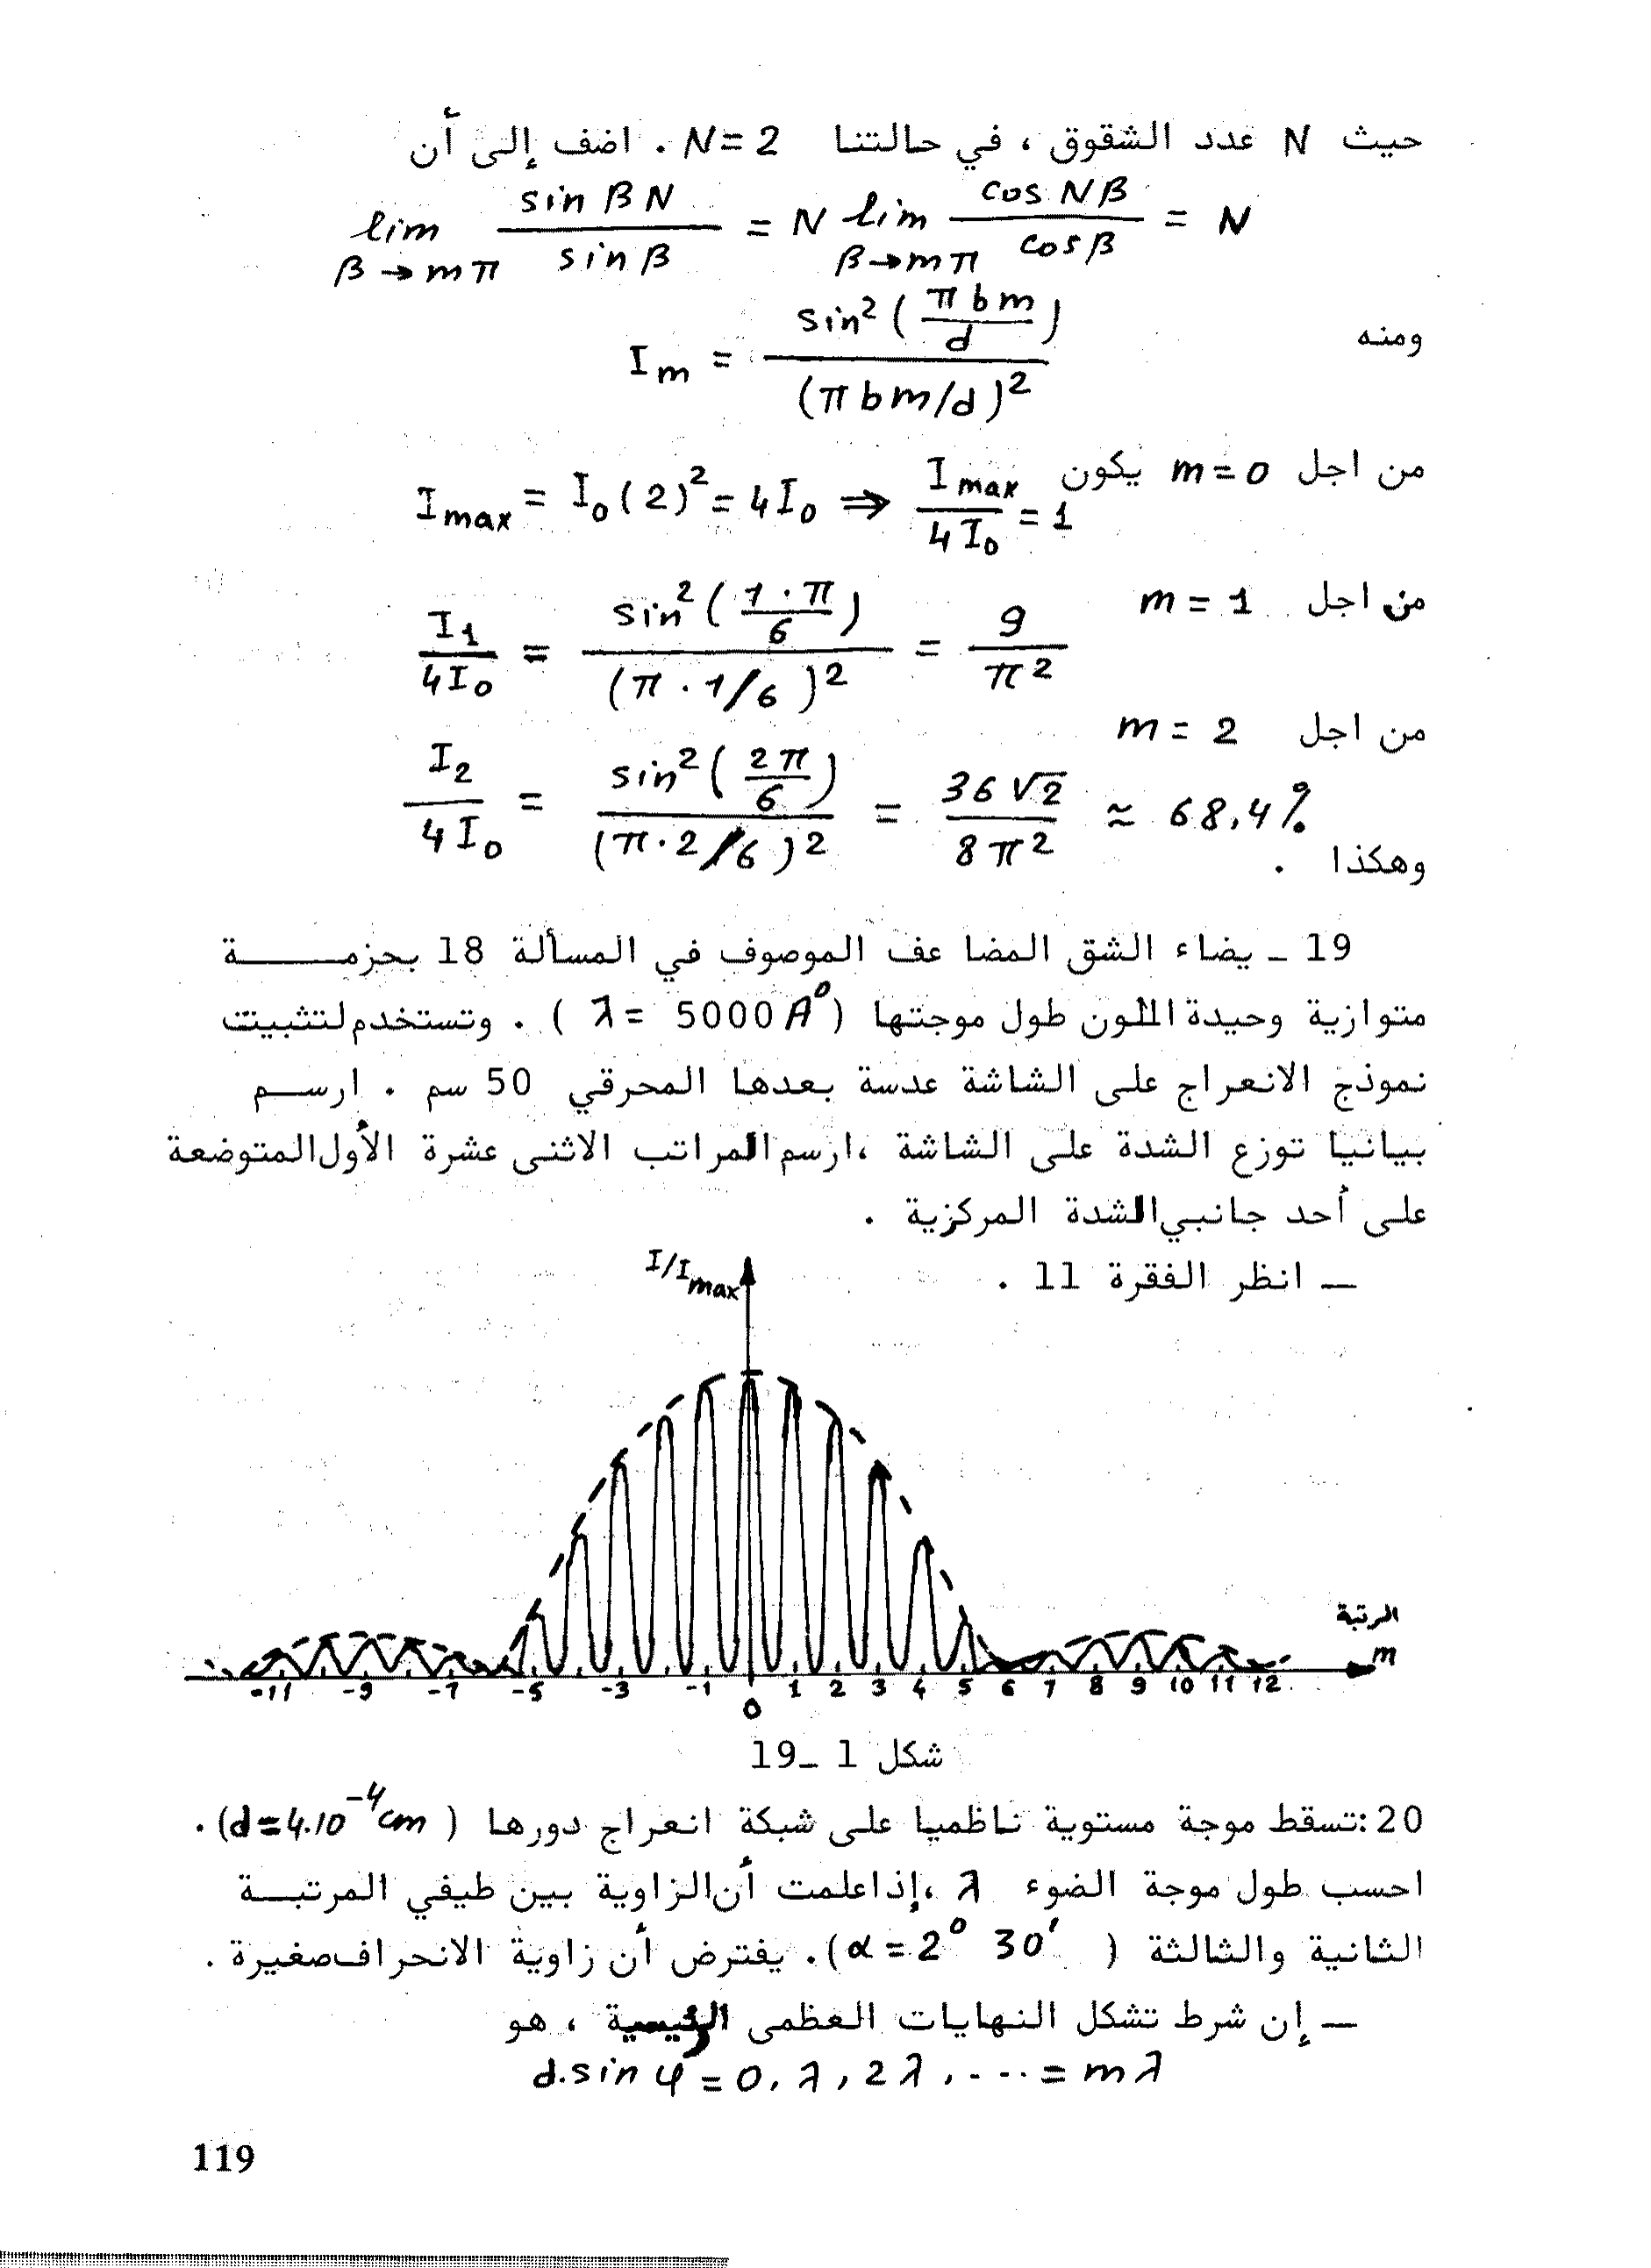 حيث N عدد الشقوق ، في حالتنا N = 2 . اضف إلى أن
lim β→mπ sin βN / sin β = N lim β→mπ cos Nβ / cos β = N
ومنه I m = sin² (π b m / d) / (π b m/d)²
من اجل m = 0 يكون
I max = I₀(2)² = 4I₀ ⇒ I max / 4 I₀ = 1
من اجل m = 1
I₁ / 4I₀ = sin² (1 . π / 6) / (π . 1/6)² = 9 / π²
من اجل m = 2
I₂ / 4I₀ = sin² (2π / 6) / (π . 2/6)² = 36 √2 / 8 π² ≈ 68,4%
وهكذا .
19 ـ يضاء الشق المضا عف الموصوف في المسألة 18 بحزمـــــة
متوازية وحيدة اللون طول موجتها (λ = 5000 A°) . وتستخدم لتثبيت
نموذج الانعراج على الشاشة عدسة بعدها المحرقي 50 سم . ارســم
بيانيا توزع الشدة على الشاشة ،ارسم المراتب الاثنى عشرة الأول المتوضعة
على أحد جانبي الشدة المركزية .
ـ انظر الفقرة 11 .
I/I max
الرتبة
m
-11 -9 -7 -5 -3 -1 0 1 2 3 4 5 6 7 8 9 10 11 12
شكل 1 ـ19
20:تسقط موجة مستوية ناظميا على شبكة انعراج دورها (d = 4.10⁻⁴ cm) .
احسب طول موجة الضوء λ ،إذا علمت أن الزاوية بين طيفي المرتبــة
الثانية والثالثة (α = 2° 30′) . يفترض أن زاوية الانحراف صغيرة .
ـ إن شرط تشكل النهايات العظمى الرئيسية ، هو
d.sin φ = 0, λ, 2λ, .... = m λ
119